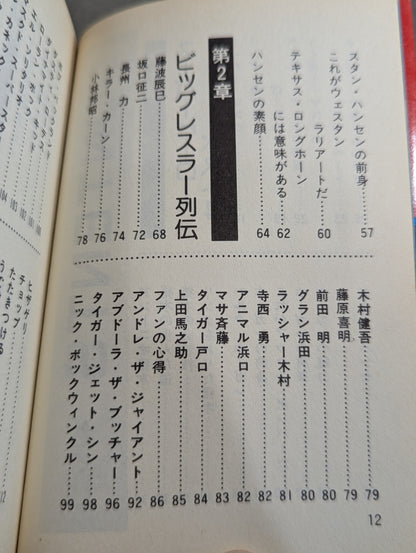 スタン・ハンセンの前身……57
これがウェスタン
ラリアートだ……60
テキサス・ロングホーン
には意味がある……62
ハンセンの素顔……64
第2章
ビッグレスラー列伝
藤波辰巳……68
坂口征二……72
長州 力……74
キラー・カーン……76
小林邦昭……78
木村健吾……79
藤原喜明……79
前田 明……80
グラン浜田……80
ラッシャー木村……81
寺西 勇……82
アニマル浜口……82
マサ斉藤……83
タイガー戸口……84
上田馬之助……85
ファンの心得……86
アンドレ・ザ・ジャイアント……92
アブドーラ・ザ・ブッチャー……96
タイガー・ジェット・シン……98
ニック・ボックウィンクル……99
12
ヒザゲリ
チョップ
たたきつける